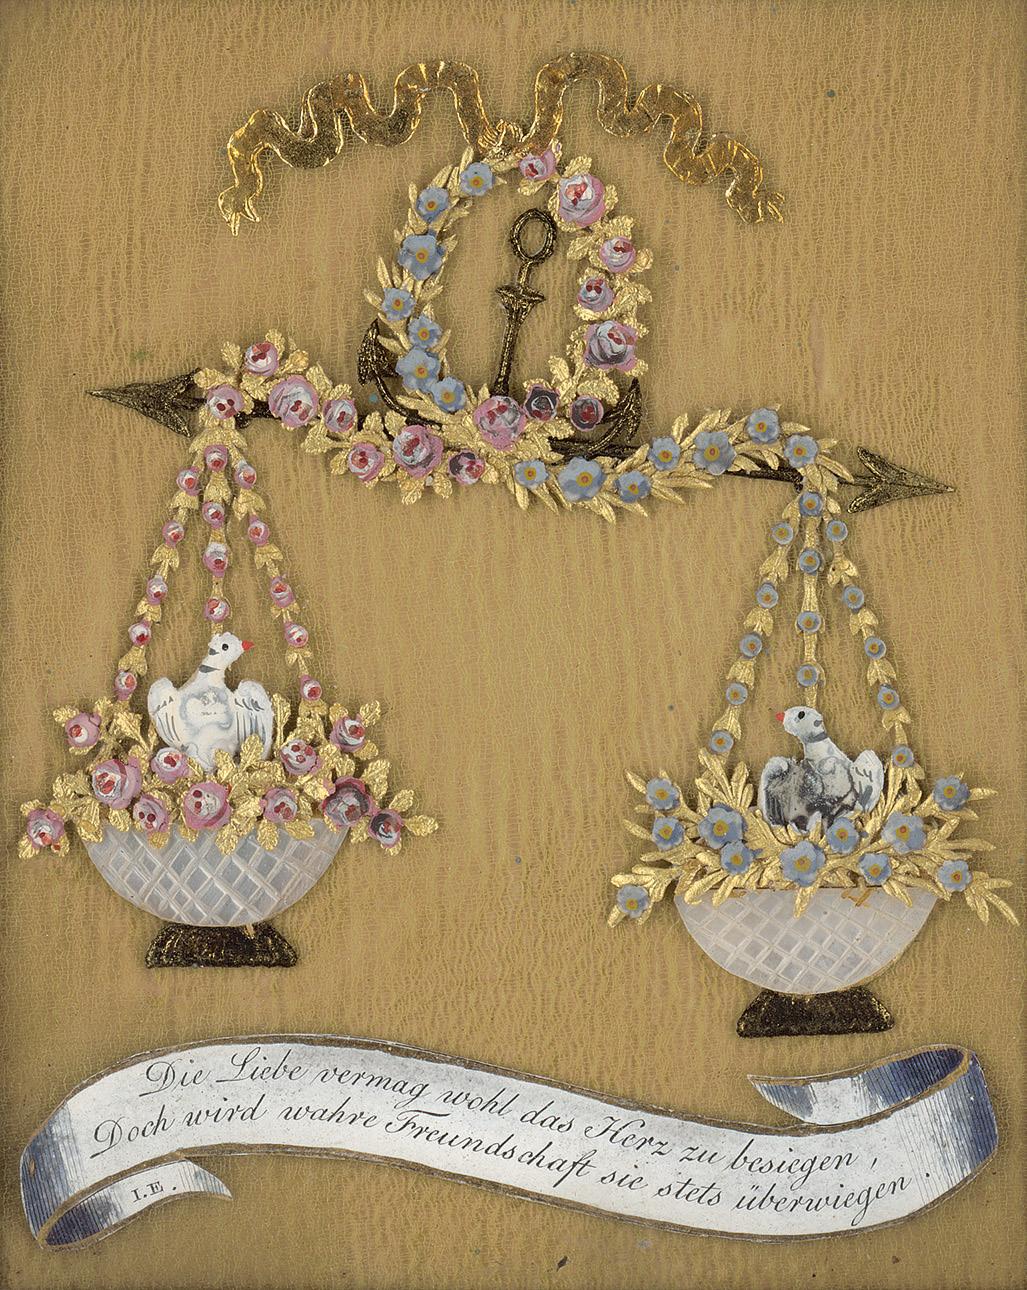 Die Liebe vermag wohl das Herz zu besiegen,
Doch wird wahre Freundschaft sie stets überwiegen.
I.E.